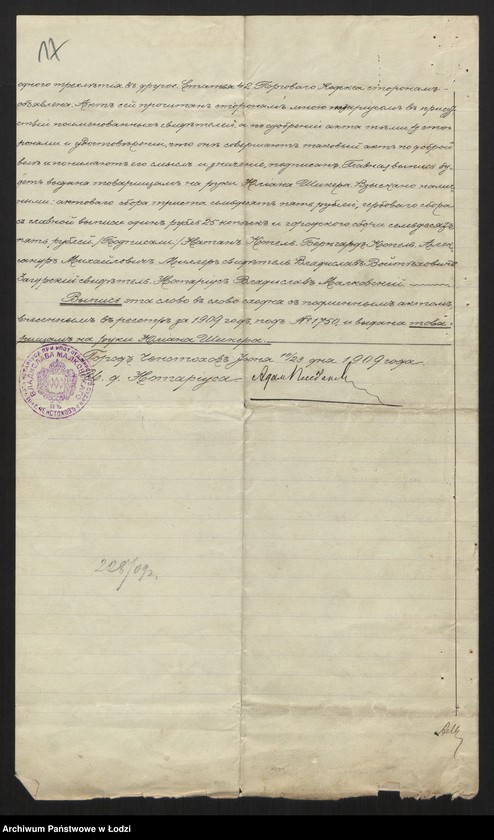 17
одного трехлѣтія въ другое. Статья 42 Торговаго Кодекса сторонамъ
объявлена. Актъ сей прочитан сторонамъ мною нотаріусомъ въ присут-
ствіи поименованныхъ свидѣтелей, а по одобреніи акта тѣми же сто-
ронами и удостовѣреніи, что онѣ совершаютъ таковый актъ по доброй
волѣ и понимаютъ его смыслъ и значеніе, подписан. Главная выпись бу-
детъ выдана товарищамъ на руки Юліана Шикера. Взыскано налич-
ными: актоваго сбора триста семьдесятъ пять рублей, гербоваго сбора
съ главной выписи один рубль 25 копѣекъ и городскаго сбора семьдесятъ
пять рублей. /Подписали:/ Натанъ Копель. Бернгардъ Копель. Алек-
сандръ Михайловичъ свидѣтель Владиславъ Войтѣховичъ
Загурскій свидѣтель. Нотаріусъ Владиславъ Малковскій
Выпись эта слово въ слово сходна съ подлиннымъ актомъ,
внесеннымъ въ реестръ за 1909 годъ подъ № 1750 и выдана това-
рищамъ на руки Юліана Шикера.
Городъ Ченстоховъ, Іюня 10/23 дня 1909 года.
И. д. Нотаріуса
Адам
ВЛАДИСЛАВА
ВЪ
ЧЕНСТОХОВѢ
228/09г.
Archiwum Państwowe w Łodzi